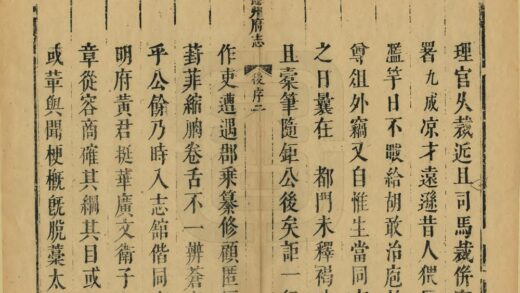 理官久裁近且司馬裁併
署九咸凉才遠遜昔人猥
濫竽日不暇給胡敢治庖
尊俎外竊又自惟生當同
之日曩在　都門未釋褐
且橐筆隨鉅公後矣詎一行
州府志　後序二
作吏遭遇郡乘纂修顧匿
葑菲縮朒卷舌不一辨蒼
乎公餘乃時入志館偕同
明府黃君挺華廣文衛子
章從容商確其綱其目或
或與聞梗槪旣脫藁太